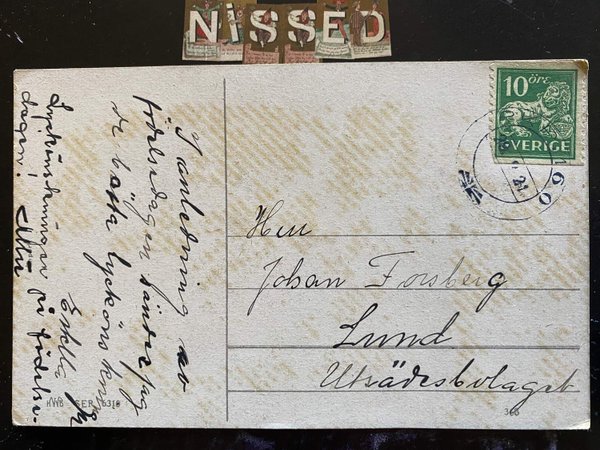 NiSSED
10 ÖRE
SVERIGE
I anledning av
födelsedagen sänder jag
de bästa lyckönskn
Estella
Lyckönskningar på födelse-
dagen!
Herr
Johan Forsberg
Lund
Uträdesbolaget
HWB SER 6318
366